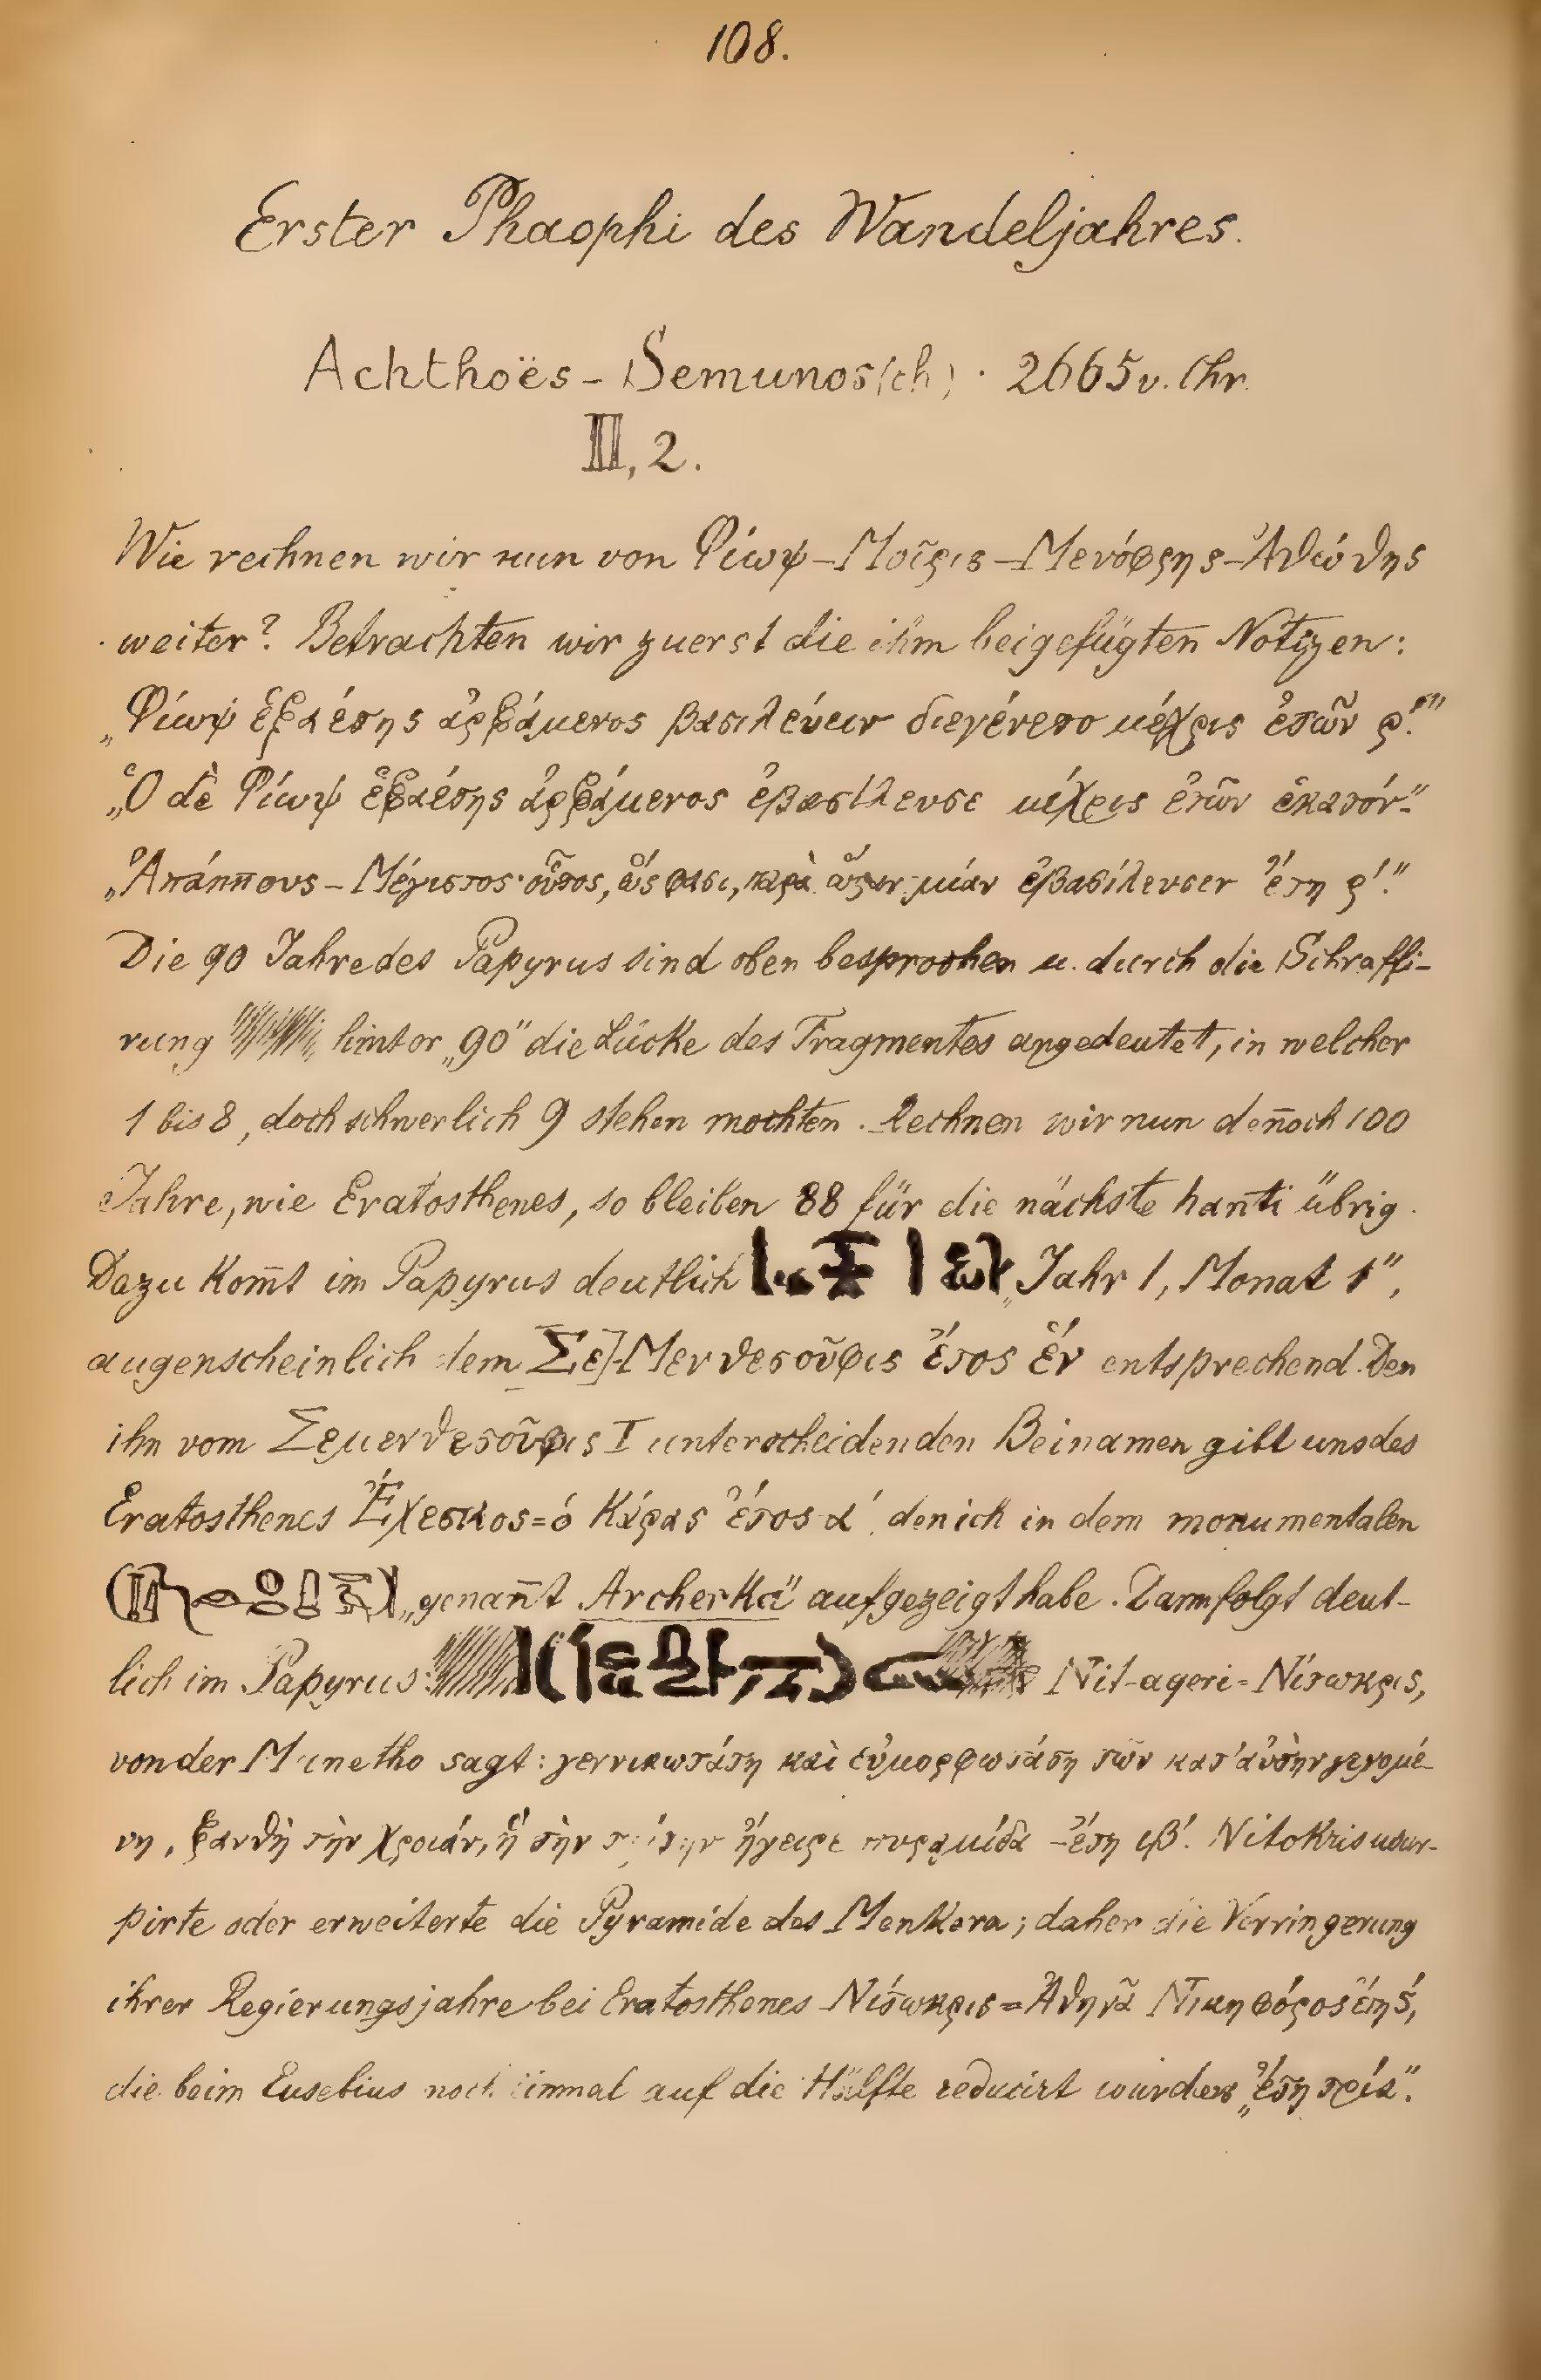 108.
Erster Phaophi des Wandeljahres.
Achthoës – Semunos(ch) · 2665 v. Chr.
II, 2.
Wie rechnen wir nun von Φίωψ–Μοῖρις–Μενόφρης–Ἀθώθης
weiter? Betrachten wir zuerst die ihm beigefügten Notizen:
„Φίωψ ἑξαέτης ἀρξάμενος βασιλεύειν διεγένετο μέχρις ἐτῶν ρ΄.“
„Ὁ δὲ Φίωψ ἑξαέτης ἀρξάμενος ἐβασίλευσε μέχρις ἐτῶν ἑκατόν“
„Ἀπάππους – Μέγιστος· οὗτος, ὥς φασι, παρὰ ὥραν μίαν ἐβασίλευσεν ἔτη ρ΄.“
Die 90 Jahre des Papyrus sind oben besprochen u. durch die Schraffi-
rung hinter „90“ die Lücke des Fragmentes angedeutet, in welcher
1 bis 8, doch schwerlich 9 stehen mochten. Rechnen wir nun den̄och 100
Jahre, wie Eratosthenes, so bleiben 88 für die nächste hanti übrig.
Dazu kom̄t im Papyrus deutlich „Jahr 1, Monat 1“,
augenscheinlich dem [Σε]-Μενθεσοῦφις ἔτος ἕν entsprechend. Den
ihn vom Σεμενθεσοῦφις I unterscheidenden Beinamen gibt uns des
Eratosthenes Ἐχεσκος=ὁ Κάρας ἔτος α΄ den ich in dem monumentalen
„genan̄t Archerka“ aufgezeigt habe. Dann folgt deut-
lich im Papyrus: Nit-ageri = Νίτωκρις,
von der Manetho sagt: γεννικωτάτη καὶ εὐμορφωτάτη τῶν κατ’ αὐτὴν γενομέ-
νη, ξανθὴ τὴν χροιάν, ἣ τὴν τρίτην ἤγειρε πυραμίδα – ἔτη ιβ΄. Nitokris usur-
pirte oder erweiterte die Pyramide des Menkera; daher die Verringerung
ihrer Regierungsjahre bei Eratosthenes Νίτωκρις = Ἀθηνᾶ Νικηφόρος ἔτη ς΄,
die beim Eusebius noch einmal auf die Hälfte reducirt wurden „ἔτη τρία“.